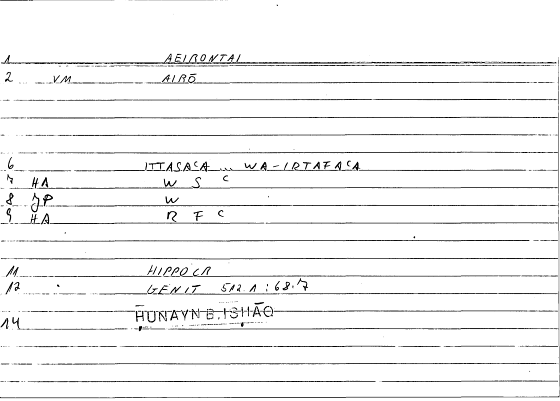 1 AEIRONTAI
2 VM AIRŌ
6 ITTASAʿA ... WA-IRTAFAʿA
7 HA W S ʿ
8 JP W
9 HA R F ʿ
11 HIPPOCR
12 GENIT 512.1:68.7
14 ḤUNAYN B. ISḤĀQ